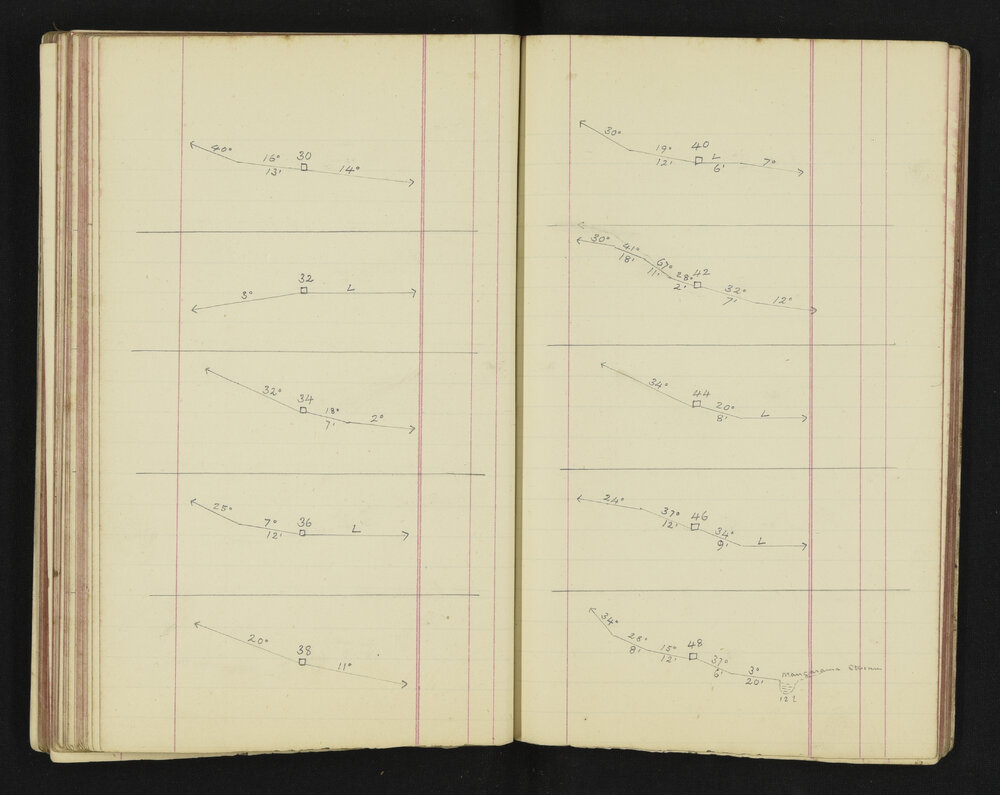 40° 16° 30 14°
13'
32
3° L
32° 34 18° 2°
7'
25° 7° 36 L
12'
20° 38 11°
30° 19° 40 L 7°
12' 6'
30° 41° 67° 28° 42 32° 12°
18' 11' 2' 7'
34° 44 20° L
8'
24° 37° 46 34° L
12' 9'
34° 28° 15° 48 37° 3°
8' 12' 6' 20'